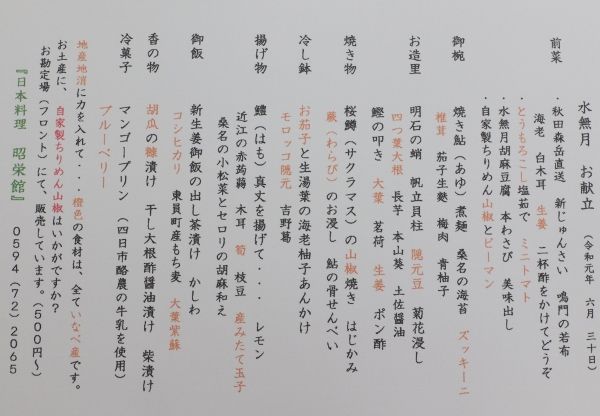 水無月　お献立　（令和元年　六月　三十日）
前菜
・秋田森岳直送　新じゅんさい　鳴門の若布
海老　白木耳　生姜　二杯酢をかけてどうぞ
・とうもろこし塩茹で　ミニトマト
・水無月胡麻豆腐　本わさび　美味出し
・自家製ちりめん山椒とピーマン
御椀　焼き鮎（あゆ）煮麺　桑名の海苔　ズッキーニ
椎茸　茄子生麩　梅肉　青柚子
お造里　明石の蛸　帆立貝柱　隠元豆　菊花浸し
四つ葉大根　長芋　本山葵　土佐醤油
鰹の叩き　大葉　茗荷　生姜　ポン酢
焼き物　桜鱒（サクラマス）の山椒焼き　はじかみ
蕨（わらび）のお浸し　鮎の骨せんべい
冷し鉢　お茄子と生湯葉の海老柚子あんかけ
モロッコ隠元　吉野葛
揚げ物　鱧（はも）真丈を揚げて・・・　レモン
近江の赤蒟蒻　木耳　筍　枝豆　産みたて玉子
桑名の小松菜とセロリの胡麻和え
御飯　新生姜御飯の出し茶漬け　かしわ
コシヒカリ　東員町産もち麦　大葉紫蘇
香の物　胡瓜の糠漬け　干し大根酢醤油漬け　柴漬け
冷菓子　マンゴープリン　（四日市酪農の牛乳を使用）
ブルーベリー
地産地消に力を入れて・・・橙色の食材は、全ていなべ産です。
お土産に、自家製ちりめん山椒はいかがですか？
お勘定場（フロント）にて、販売しています。（５００円～）
『日本料理　昭栄館』　０５９４（７２）２０６５